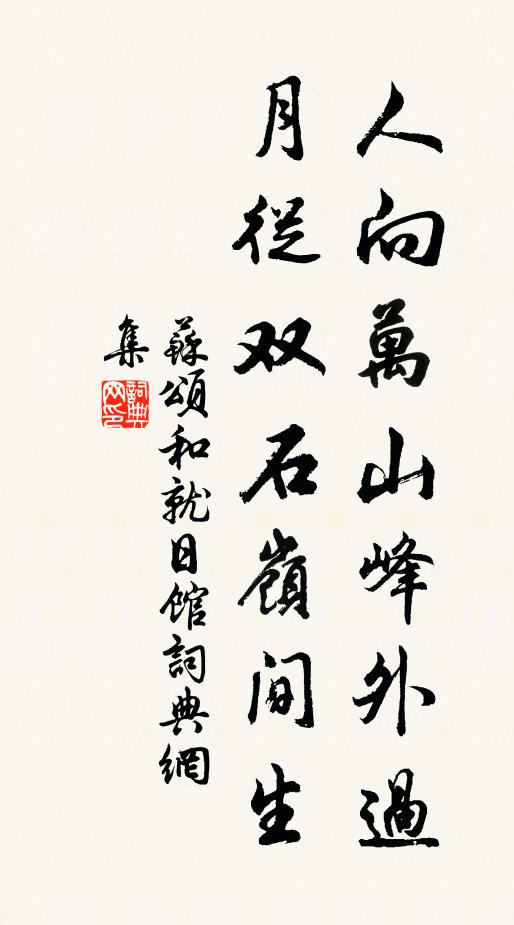 人向萬山峰外過
月從双石嶺間生
蘇頌和就日館詞典網
集
詞典
网印